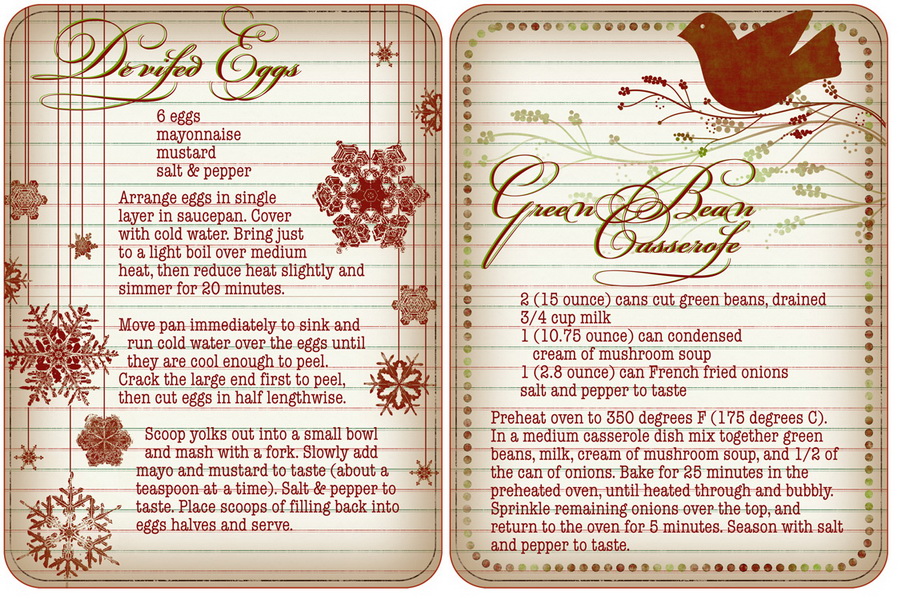 Deviled Eggs
6 eggs
mayonnaise
mustard
salt & pepper
Arrange eggs in single
layer in saucepan. Cover
with cold water. Bring just
to a light boil over medium
heat, then reduce heat slightly and
simmer for 20 minutes.
Move pan immediately to sink and
run cold water over the eggs until
they are cool enough to peel.
Crack the large end first to peel,
then cut eggs in half lengthwise.
Scoop yolks out into a small bowl
and mash with a fork. Slowly add
mayo and mustard to taste (about a
teaspoon at a time). Salt & pepper to
taste. Place scoops of filling back into
eggs halves and serve.
Green Bean
Casserole
2 (15 ounce) cans cut green beans, drained
3/4 cup milk
1 (10.75 ounce) can condensed
cream of mushroom soup
1 (2.8 ounce) can French fried onions
salt and pepper to taste
Preheat oven to 350 degrees F (175 degrees C).
In a medium casserole dish mix together green
beans, milk, cream of mushroom soup, and 1/2 of
the can of onions. Bake for 25 minutes in the
preheated oven, until heated through and bubbly.
Sprinkle remaining onions over the top, and
return to the oven for 5 minutes. Season with salt
and pepper to taste.